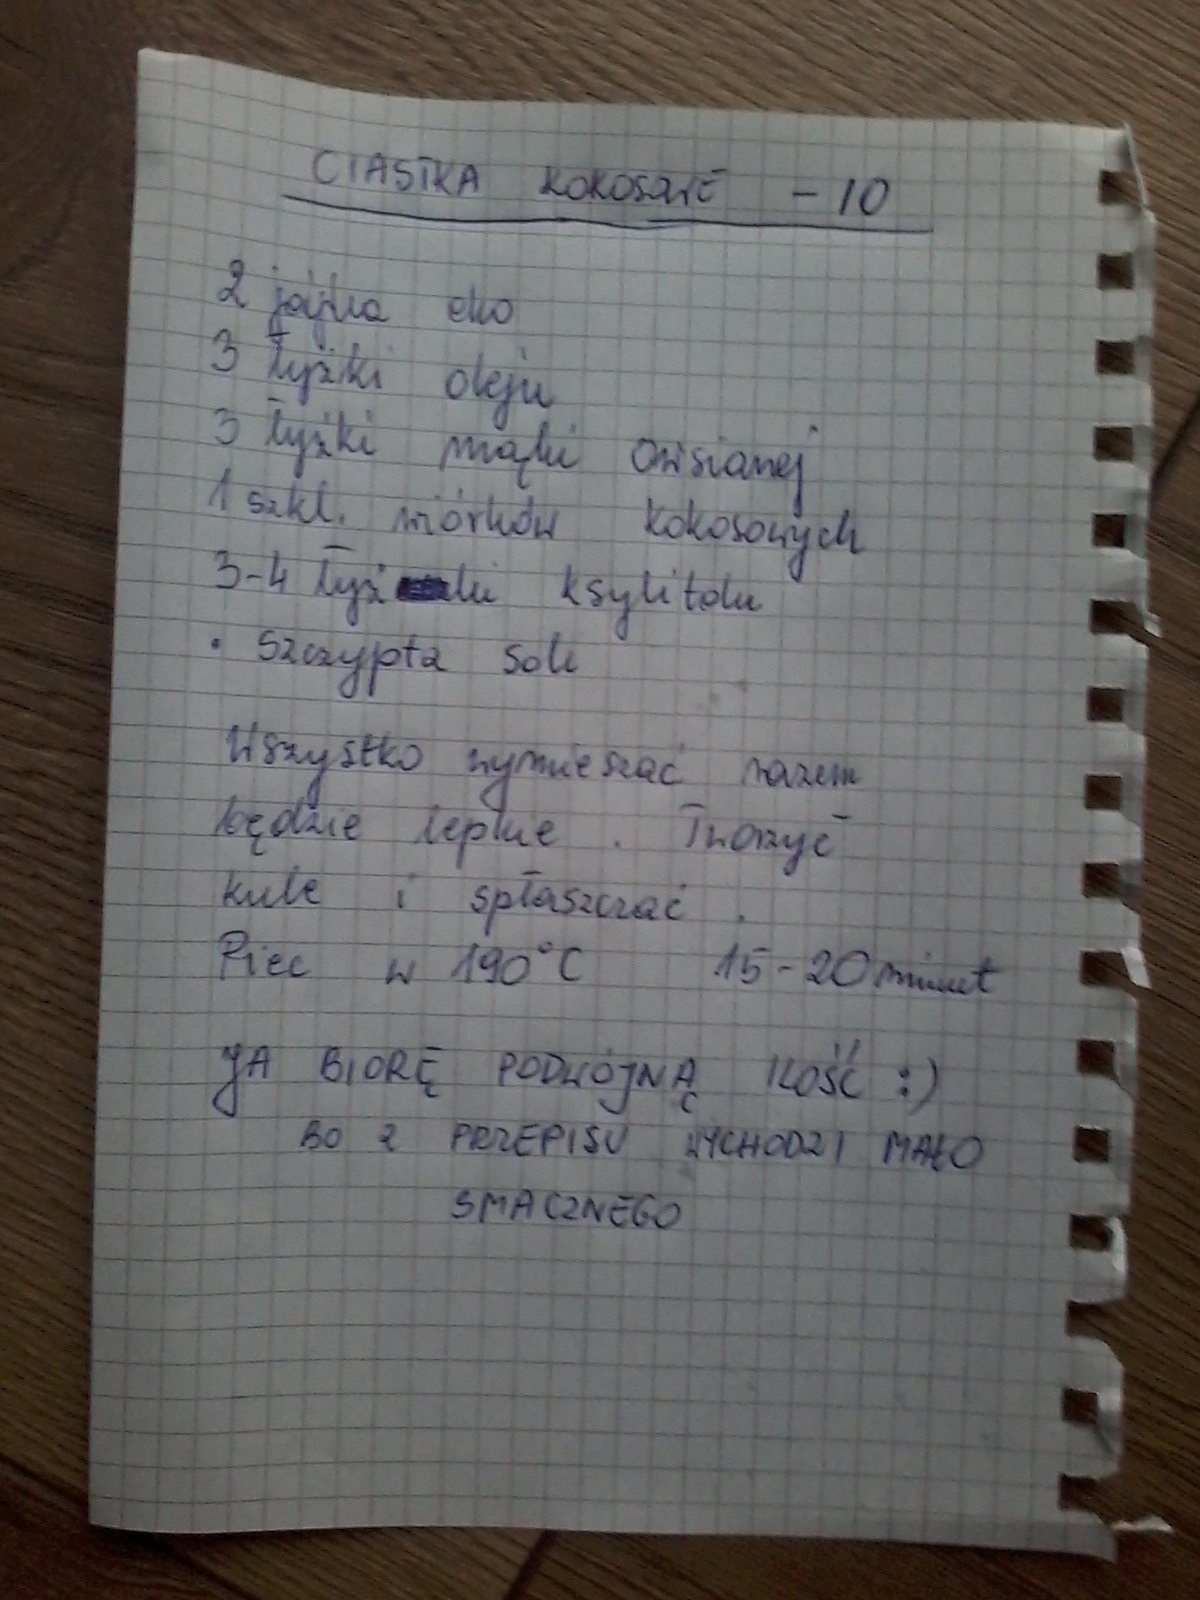 CIASTKA KOKOSOWE - 10
2 jajka eko
3 łyżki oleju
3 łyżki mąki owsianej
1 szkl. wiórków kokosowych
3-4 łyżki ksylitolu
• szczypta soli
Wszystko wymieszać razem
będzie lepkie. Tworzyć
kule i spłaszczać.
Piec w 190°C 15-20 minut
JA BIORĘ PODWÓJNĄ ILOŚĆ :)
BO Z PRZEPISU WYCHODZI MAŁO
SMACZNEGO